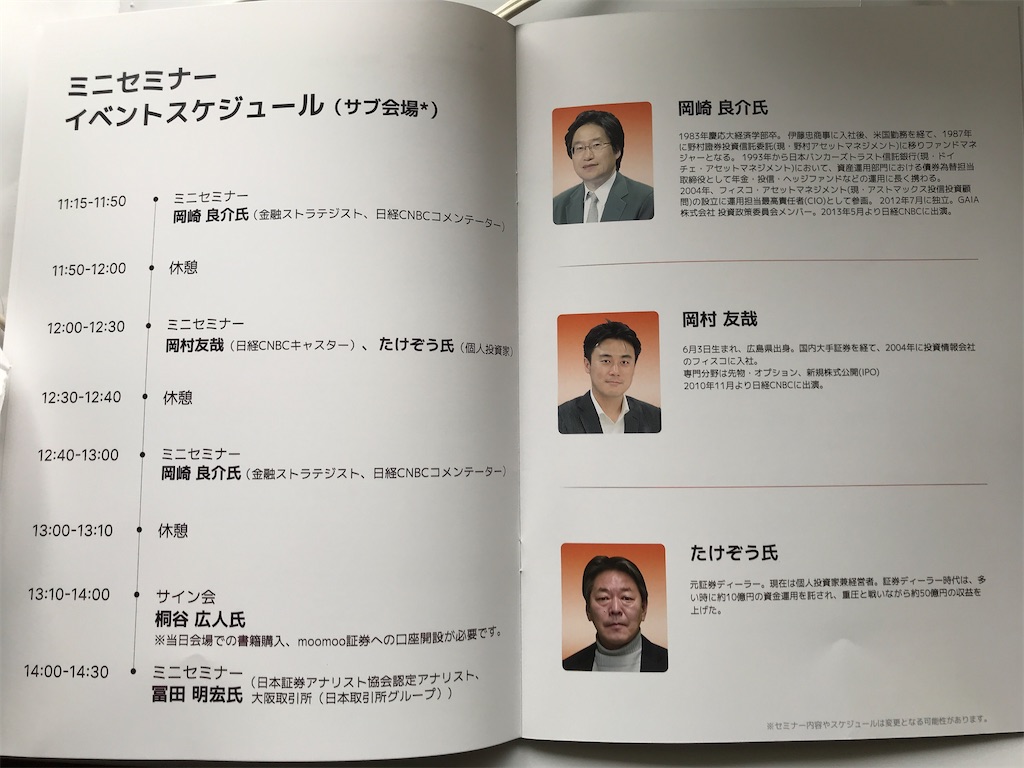 ミニセミナー
イベントスケジュール (サブ会場*)
11:15-11:50
ミニセミナー
岡崎 良介氏(金融ストラテジスト、日経CNBCコメンテーター)
11:50-12:00
休憩
12:00-12:30
ミニセミナー
岡村友哉(日経CNBCキャスター)、たけぞう氏(個人投資家)
12:30-12:40
休憩
12:40-13:00
ミニセミナー
岡崎 良介氏(金融ストラテジスト、日経CNBCコメンテーター)
13:00-13:10
休憩
13:10-14:00
サイン会
桐谷 広人氏
※当日会場での書籍購入、moomoo証券への口座開設が必要です。
14:00-14:30
ミニセミナー
冨田 明宏氏
(日本証券アナリスト協会認定アナリスト、
大阪取引所(日本取引所グループ))
岡崎 良介氏
1983年慶応大経済学部卒。 伊藤忠商事に入社後、米国勤務を経て、1987年
に野村證券投資信託委託(現・野村アセットマネジメント)に移りファンドマネ
ジャーとなる。 1993年から日本バンカーズトラスト信託銀行(現・ドイ
チェ・アセットマネジメント)において、資産運用部門における債券為替担当
取締役として年金・投信・ヘッジファンドなどの運用に長く携わる。
2004年、フィスコ・アセットマネジメント(現・アストマックス投信投資顧
問)の設立に運用担当最高責任者(CIO)として参画。 2012年7月に独立。GAIA
株式会社 投資政策委員会メンバー。2013年5月より日経CNBCに出演。
岡村 友哉
6月3日生まれ、広島県出身。国内大手証券を経て、2004年に投資情報会社
のフィスコに入社。
専門分野は先物・オプション、新規株式公開(IPO)
2010年11月より日経CNBCに出演。
たけぞう氏
元証券ディーラー。現在は個人投資家兼経営者。証券ディーラー時代は、多
い時に約10億円の資金運用を託され、重圧と戦いながら約50億円の収益を
上げた。
※セミナー内容やスケジュールは変更となる可能性があります。